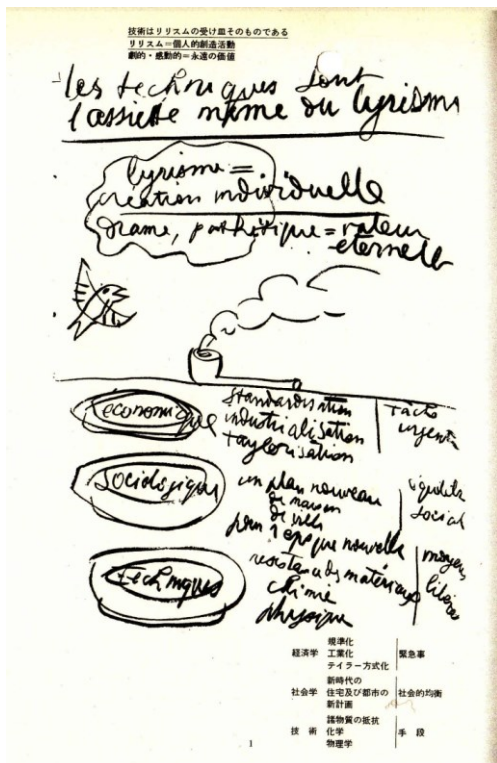 技術はリリスムの受け皿そのものである
リリスム＝個人的創造活動
劇的・感動的＝永遠の価値
les techniques sont
l'assiette même du lyrisme
lyrisme =
création individuelle
drame, pathétique = valeur
éternelle
économique
standardisation
industrialisation
taylorisation
tâche
urgente
sociologique
un plan nouveau
de maison
de ville
pour époque nouvelle
social
techniques
resistance des matériaux
chimie
physique
moyens
規準化
経済学 工業化 緊急事
テイラー方式化
新時代の
社会学 住宅及び都市の 社会的均衡
新計画
諸物質の抵抗
技 術 化学 手 段
物理学
1